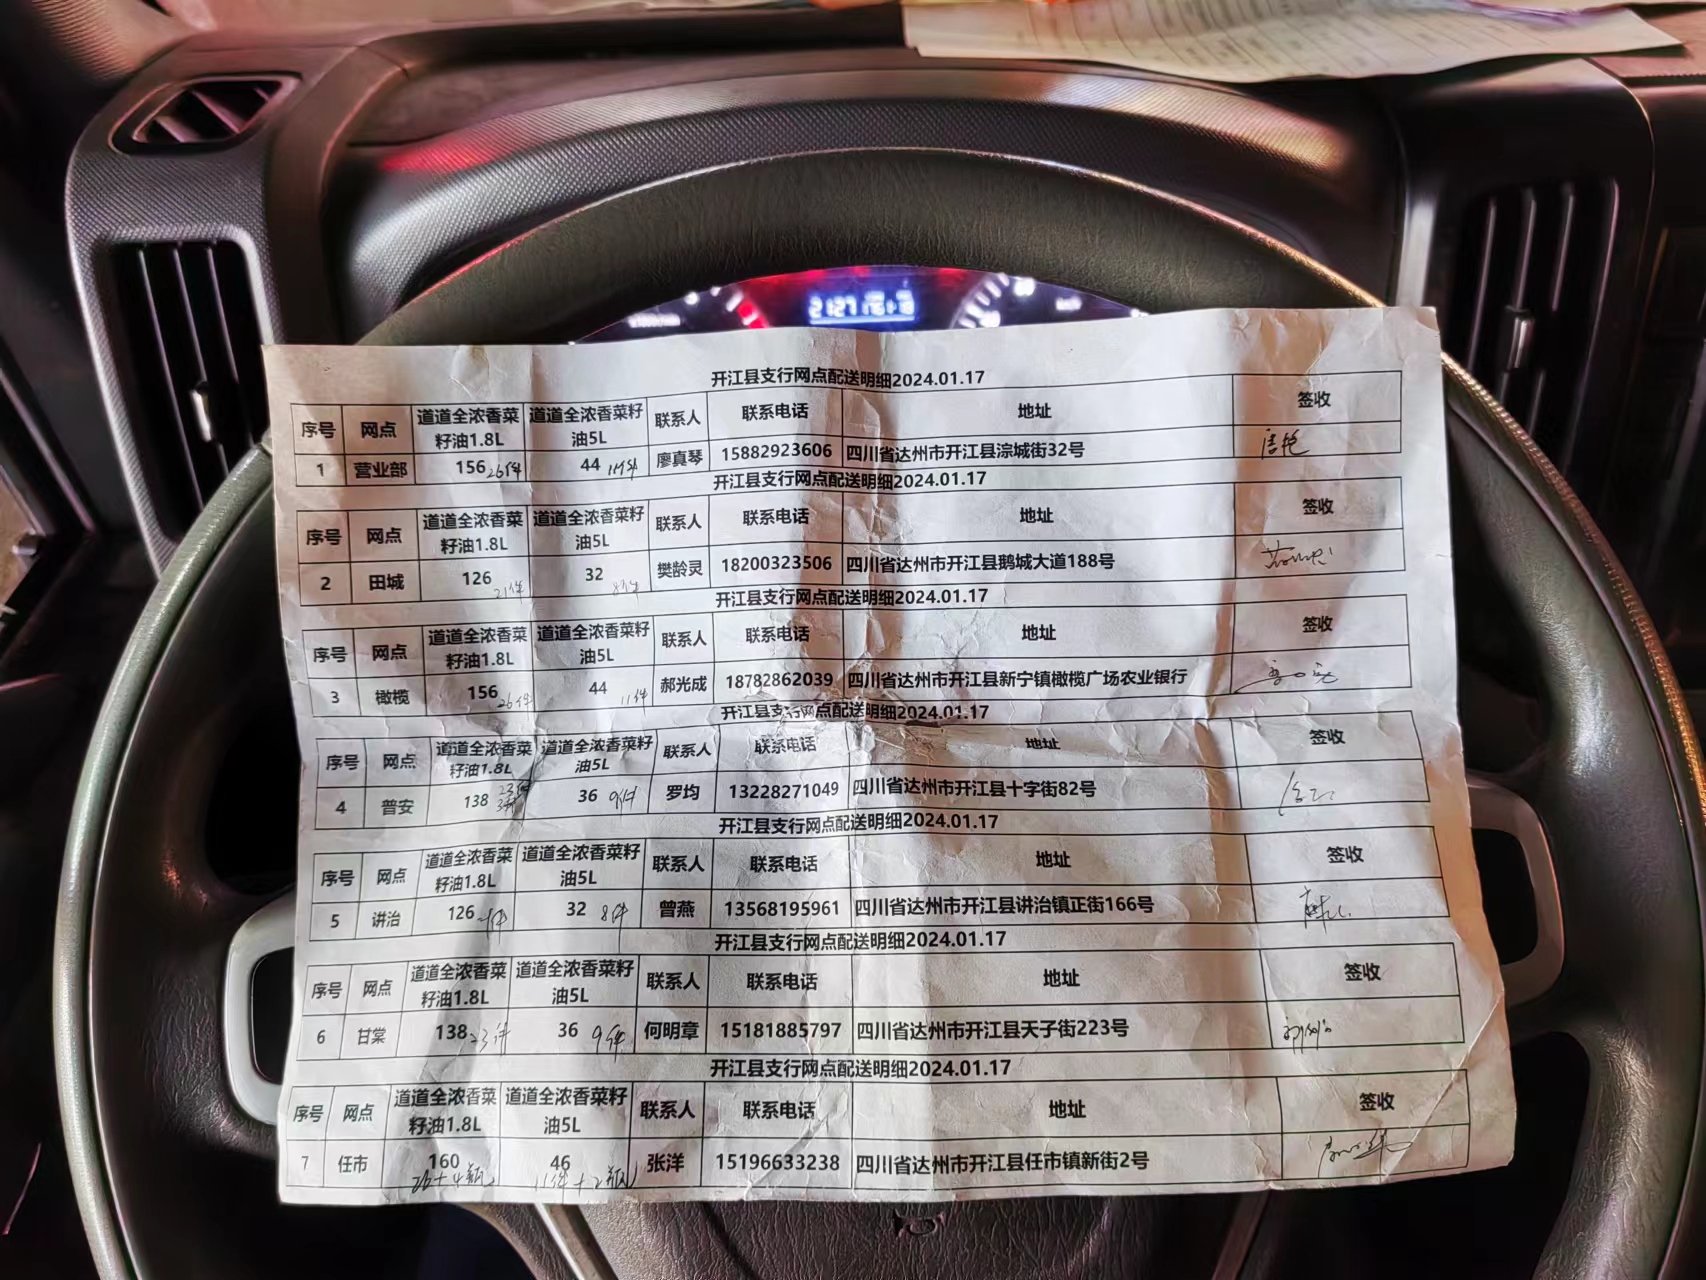 开江县支行网点配送明细2024.01.17
序号 网点 道道全浓香菜籽油1.8L 道道全浓香菜籽油5L 联系人 联系电话 地址 签收
1 营业部 156 26件 44 11件 廖真琴 15882923606 四川省达州市开江县淙城街32号
开江县支行网点配送明细2024.01.17
序号 网点 道道全浓香菜籽油1.8L 道道全浓香菜籽油5L 联系人 联系电话 地址 签收
2 田城 126 21件 32 8件 樊龄灵 18200323506 四川省达州市开江县鹅城大道188号
开江县支行网点配送明细2024.01.17
序号 网点 道道全浓香菜籽油1.8L 道道全浓香菜籽油5L 联系人 联系电话 地址 签收
3 橄榄 156 26件 44 11件 郝光成 18782862039 四川省达州市开江县新宁镇橄榄广场农业银行
开江县支行网点配送明细2024.01.17
序号 网点 道道全浓香菜籽油1.8L 道道全浓香菜籽油5L 联系人 联系电话 地址 签收
4 普安 138 23件 36 9件 罗均 13228271049 四川省达州市开江县十字街82号
开江县支行网点配送明细2024.01.17
序号 网点 道道全浓香菜籽油1.8L 道道全浓香菜籽油5L 联系人 联系电话 地址 签收
5 讲治 126 32 8件 曾燕 13568195961 四川省达州市开江县讲治镇正街166号
开江县支行网点配送明细2024.01.17
序号 网点 道道全浓香菜籽油1.8L 道道全浓香菜籽油5L 联系人 联系电话 地址 签收
6 甘棠 138 23件 36 9件 何明章 15181885797 四川省达州市开江县天子街223号
开江县支行网点配送明细2024.01.17
序号 网点 道道全浓香菜籽油1.8L 道道全浓香菜籽油5L 联系人 联系电话 地址 签收
7 任市 160 26+4瓶 46 11件+2瓶 张洋 15196633238 四川省达州市开江县任市镇新街2号